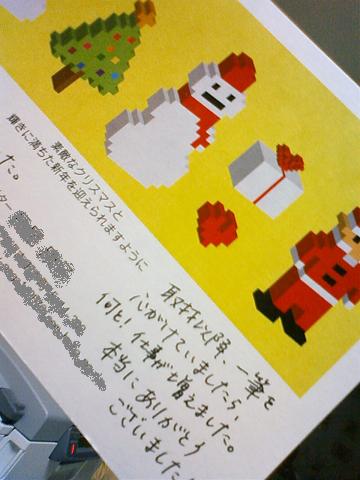 素敵なクリスマスと
輝きに満ちた新年を迎えられますように
取材以降、一筆を
心がけていましたら
何と！仕事が増えました。
本当にありがとう
ございました
た。